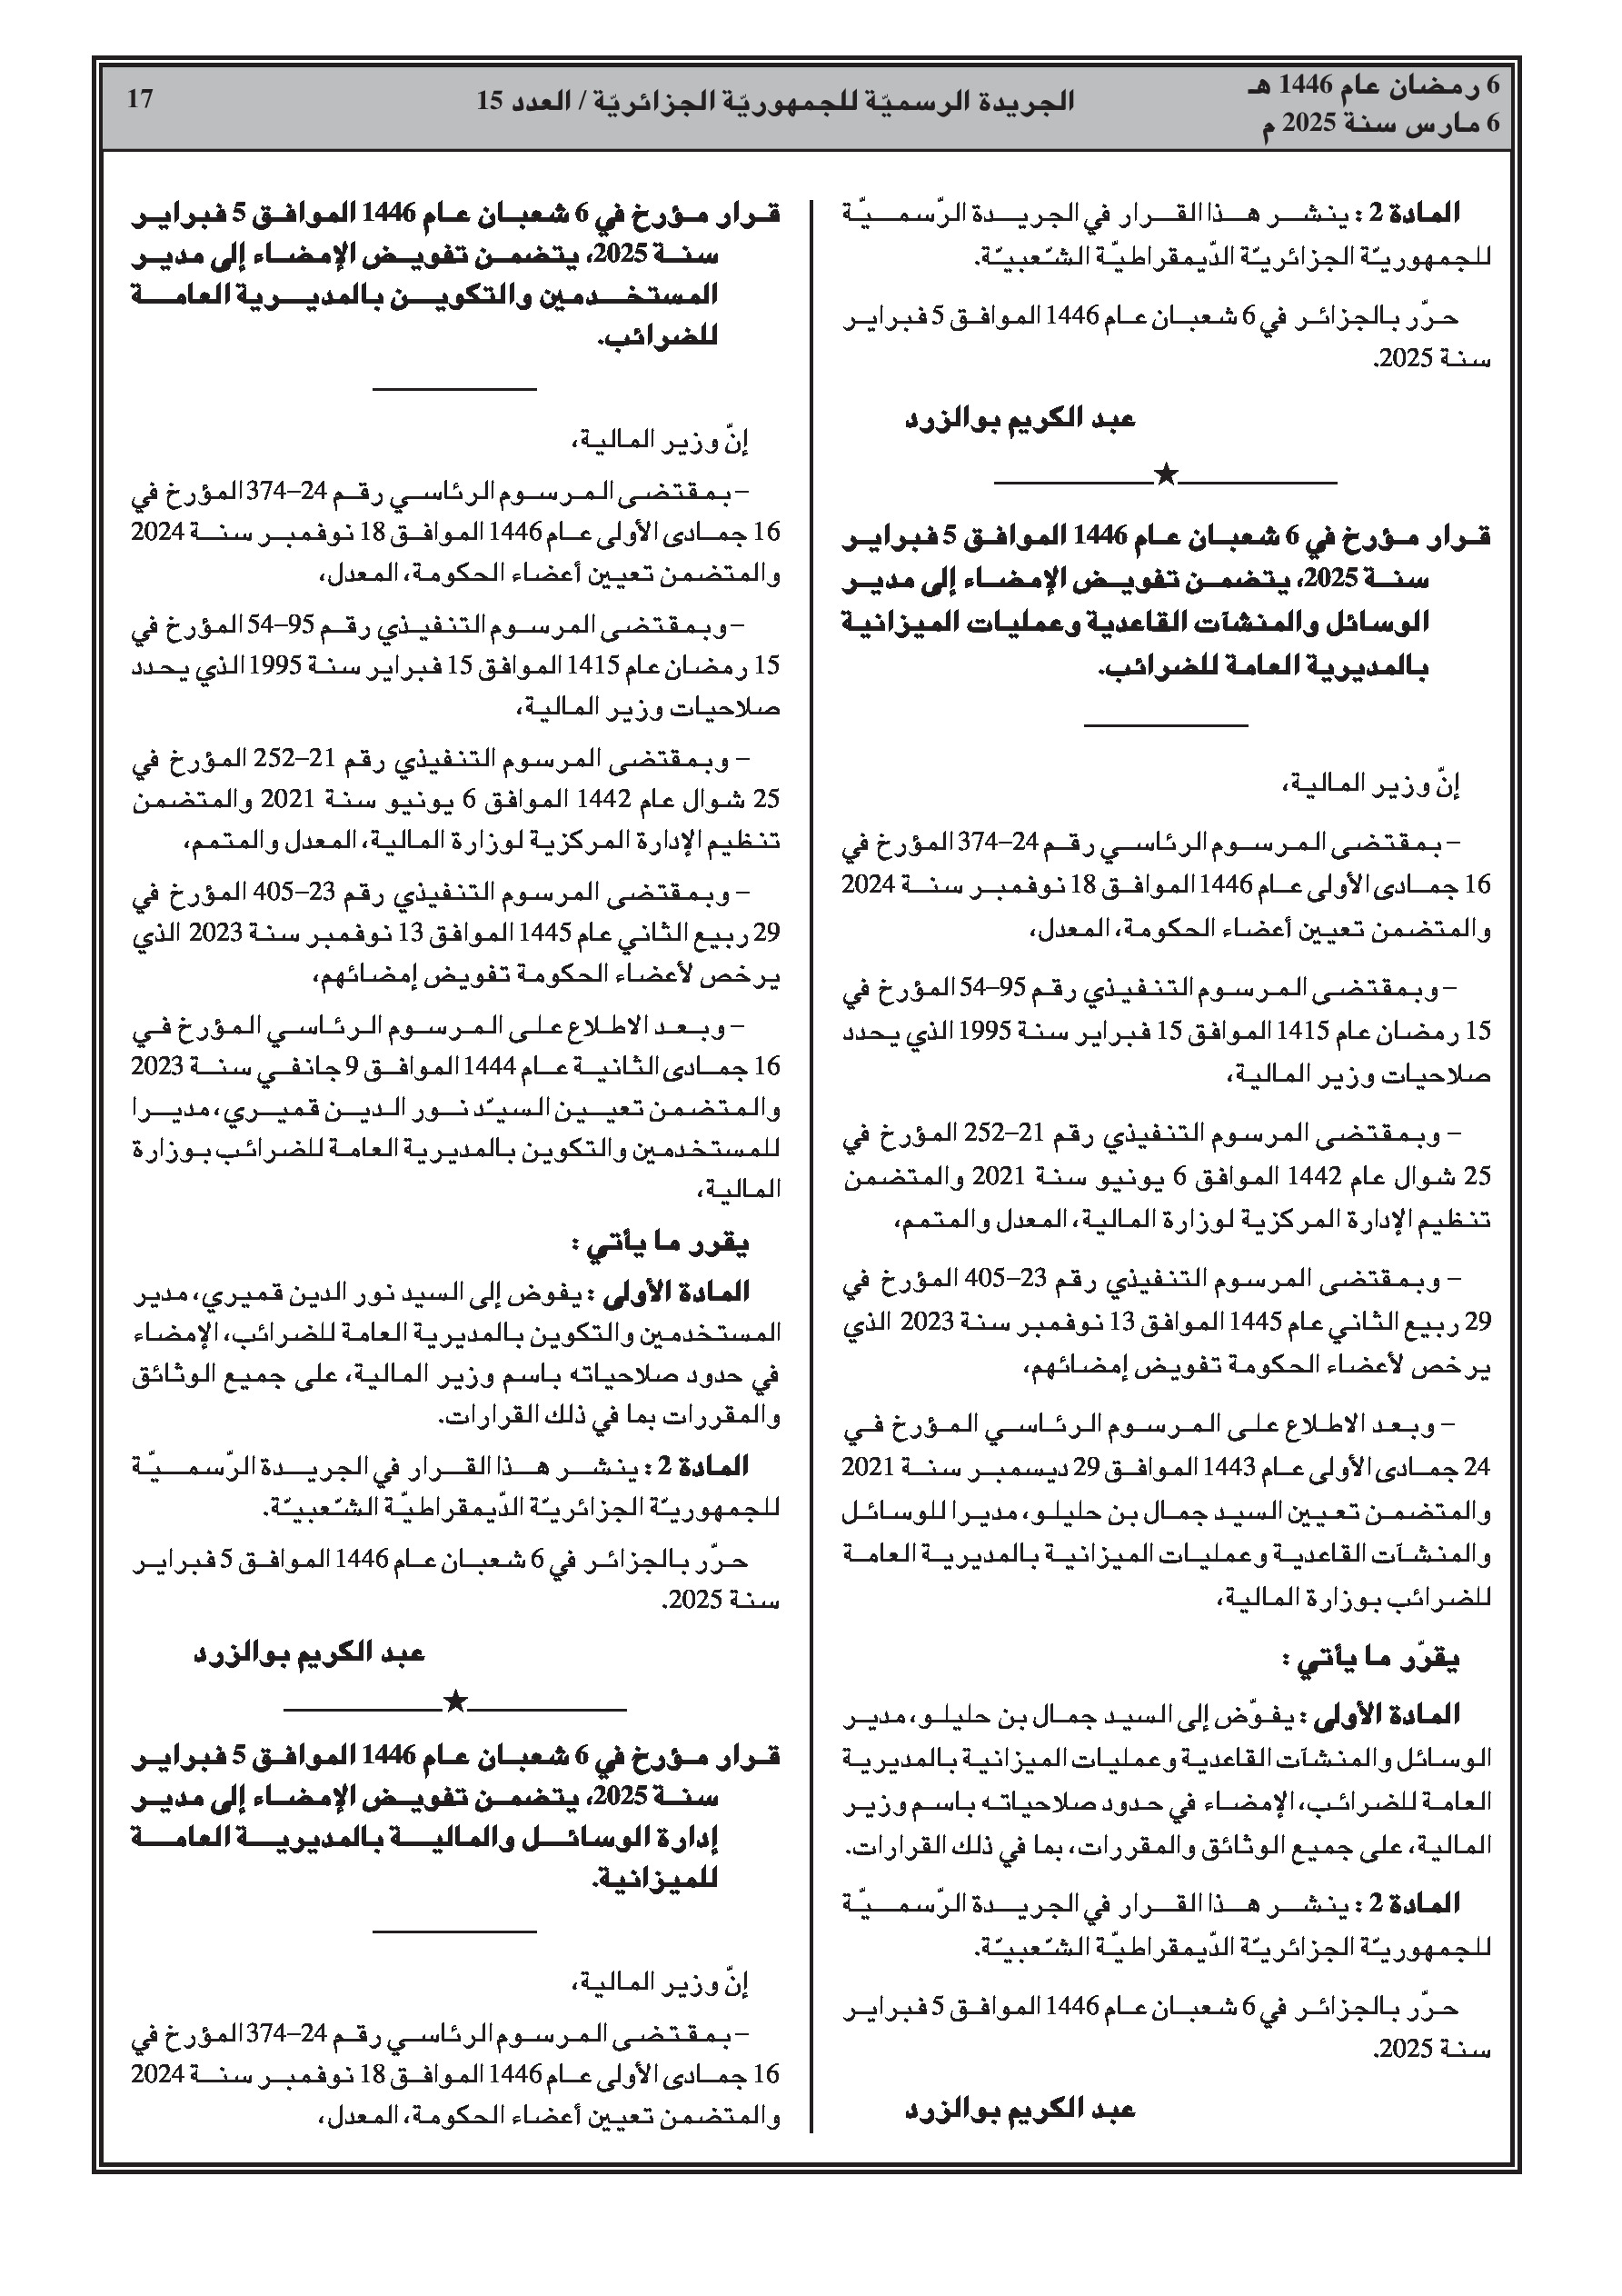 6 رمضان عام 1446 هـ
6 مارس سنة 2025 م
الجريدة الرسميّة للجمهوريّة الجزائريّة / العدد 15
17
المادة 2 : ينشر هذا القرار في الجريدة الرّسميّة
للجمهوريّة الجزائريّة الدّيمقراطيّة الشّعبيّة.
حرّر بالجزائر في 6 شعبان عام 1446 الموافق 5 فبراير
سنة 2025.
عبد الكريم بوالزرد
★
قرار مؤرخ في 6 شعبان عام 1446 الموافق 5 فبراير
سنة 2025، يتضمن تفويض الإمضاء إلى مدير
الوسائل والمنشآت القاعدية وعمليات الميزانية
بالمديرية العامة للضرائب.
إنّ وزير المالية،
– بمقتضى المرسوم الرئاسي رقم 24–374 المؤرخ في
16 جمادى الأولى عام 1446 الموافق 18 نوفمبر سنة 2024
والمتضمن تعيين أعضاء الحكومة، المعدل،
– وبمقتضى المرسوم التنفيذي رقم 95–54 المؤرخ في
15 رمضان عام 1415 الموافق 15 فبراير سنة 1995 الذي يحدد
صلاحيات وزير المالية،
– وبمقتضى المرسوم التنفيذي رقم 21–252 المؤرخ في
25 شوال عام 1442 الموافق 6 يونيو سنة 2021 والمتضمن
تنظيم الإدارة المركزية لوزارة المالية، المعدل والمتمم،
– وبمقتضى المرسوم التنفيذي رقم 23–405 المؤرخ في
29 ربيع الثاني عام 1445 الموافق 13 نوفمبر سنة 2023 الذي
يرخص لأعضاء الحكومة تفويض إمضائهم،
– وبعد الاطلاع على المرسوم الرئاسي المؤرخ في
24 جمادى الأولى عام 1443 الموافق 29 ديسمبر سنة 2021
والمتضمن تعيين السيد جمال بن حليلو، مديرا للوسائل
والمنشآت القاعدية وعمليات الميزانية بالمديرية العامة
للضرائب بوزارة المالية،
يقرّر ما يأتي :
المادة الأولى : يفوّض إلى السيد جمال بن حليلو، مدير
الوسائل والمنشآت القاعدية وعمليات الميزانية بالمديرية
العامة للضرائب، الإمضاء في حدود صلاحياته باسم وزير
المالية، على جميع الوثائق والمقررات، بما في ذلك القرارات.
المادة 2 : ينشر هذا القرار في الجريدة الرّسميّة
للجمهوريّة الجزائريّة الدّيمقراطيّة الشّعبيّة.
حرّر بالجزائر في 6 شعبان عام 1446 الموافق 5 فبراير
سنة 2025.
عبد الكريم بوالزرد
قرار مؤرخ في 6 شعبان عام 1446 الموافق 5 فبراير
سنة 2025، يتضمن تفويض الإمضاء إلى مدير
المستخدمين والتكوين بالمديرية العامة
للضرائب.
إنّ وزير المالية،
– بمقتضى المرسوم الرئاسي رقم 24–374 المؤرخ في
16 جمادى الأولى عام 1446 الموافق 18 نوفمبر سنة 2024
والمتضمن تعيين أعضاء الحكومة، المعدل،
– وبمقتضى المرسوم التنفيذي رقم 95–54 المؤرخ في
15 رمضان عام 1415 الموافق 15 فبراير سنة 1995 الذي يحدد
صلاحيات وزير المالية،
– وبمقتضى المرسوم التنفيذي رقم 21–252 المؤرخ في
25 شوال عام 1442 الموافق 6 يونيو سنة 2021 والمتضمن
تنظيم الإدارة المركزية لوزارة المالية، المعدل والمتمم،
– وبمقتضى المرسوم التنفيذي رقم 23–405 المؤرخ في
29 ربيع الثاني عام 1445 الموافق 13 نوفمبر سنة 2023 الذي
يرخص لأعضاء الحكومة تفويض إمضائهم،
– وبعد الاطلاع على المرسوم الرئاسي المؤرخ في
16 جمادى الثانية عام 1444 الموافق 9 جانفي سنة 2023
والمتضمن تعيين السيّد نور الدين قميري، مديرا
للمستخدمين والتكوين بالمديرية العامة للضرائب بوزارة
المالية،
يقرر ما يأتي :
المادة الأولى : يفوض إلى السيد نور الدين قميري، مدير
المستخدمين والتكوين بالمديرية العامة للضرائب، الإمضاء
في حدود صلاحياته باسم وزير المالية، على جميع الوثائق
والمقررات بما في ذلك القرارات.
المادة 2 : ينشر هذا القرار في الجريدة الرّسميّة
للجمهوريّة الجزائريّة الدّيمقراطيّة الشّعبيّة.
حرّر بالجزائر في 6 شعبان عام 1446 الموافق 5 فبراير
سنة 2025.
عبد الكريم بوالزرد
★
قرار مؤرخ في 6 شعبان عام 1446 الموافق 5 فبراير
سنة 2025، يتضمن تفويض الإمضاء إلى مدير
إدارة الوسائل والمالية بالمديرية العامة
للميزانية.
إنّ وزير المالية،
– بمقتضى المرسوم الرئاسي رقم 24–374 المؤرخ في
16 جمادى الأولى عام 1446 الموافق 18 نوفمبر سنة 2024
والمتضمن تعيين أعضاء الحكومة، المعدل،